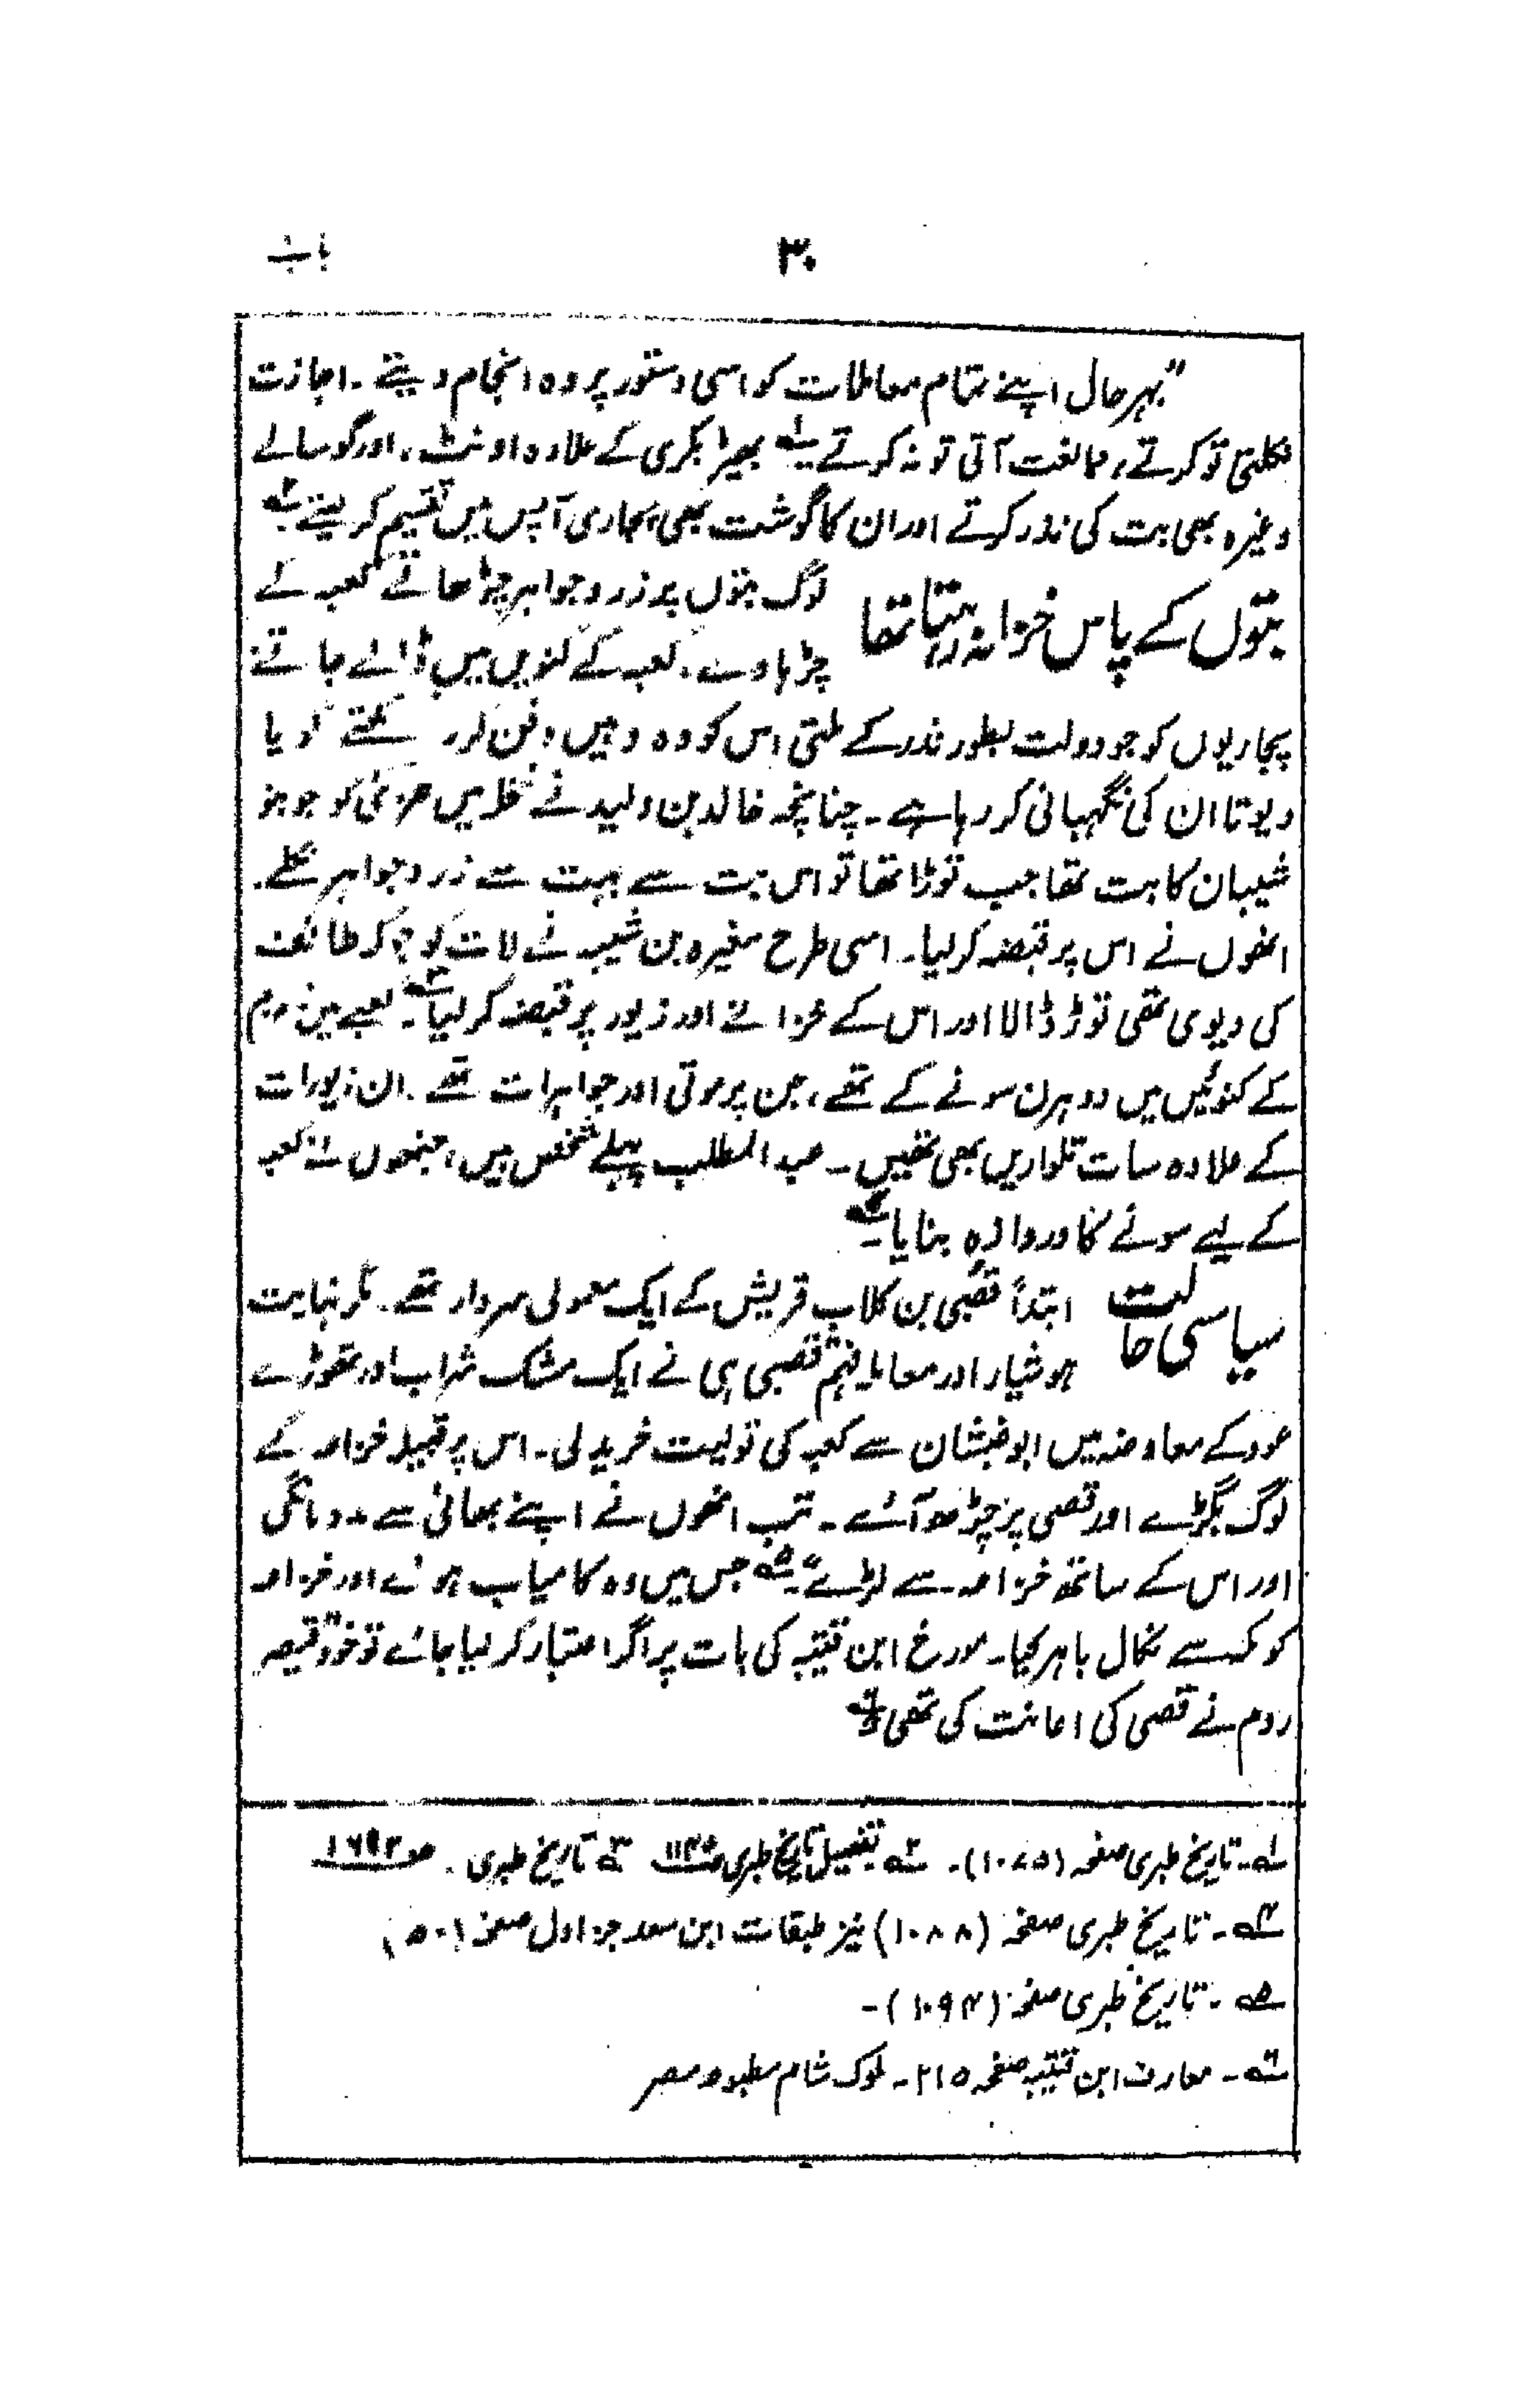 ۳۰
باب
”بہرحال اپنے تمام معاملات کو اسی دستور پر وہ انجام دیتے۔ اجازت
نکلتی تو کرتے، ممانعت آتی تو نہ کرتے۱؎ بھیڑ بکری کے علاوہ اونٹ، اور گوسالے
وغیرہ بھی بت کی نذر کرتے اور ان کا گوشت بھی پجاری آپس میں تقسیم کرلیتے۲؎
بتوں کے پاس خزانہ رہتا تھا
لوگ بتوں پر زر و جواہر چڑھاتے کعبہ کے
چڑہاوے، کعبہ کے کنویں میں ڈالے جاتے
پجاریوں کو جو دولت بطور نذر کے ملتی اس کو وہ وہیں دفن کر رکھتے گویا
دیوتا ان کی نگہبانی کر رہا ہے۔ چنانچہ خالد بن ولید نے نخلہ میں عزیٰ کو جو بنو
شیبان کا بت تھا جب توڑا تھا تو اس بت سے بہت سے زر و جواہر نکلے۔
انھوں نے اس پر قبضہ کرلیا۔ اسی طرح مغیرہ بن شیبہ نے لات کو جو کہ طائف
کی دیوی تھی توڑ ڈالا اور اس کے خزانے اور زیور پر قبضہ کرلیا۳؎۔ کعبے میں زمزم
کے کنوئیں میں دو ہرن سونے کے تھے، جن پر موتی اور جواہرات تھے۔ ان زیورات
کے علاوہ سات تلواریں بھی تھیں۔ عبدالمطلب پہلے شخص ہیں، جنھوں نے کعبہ
کے لیے سونے کا دروازہ بنایا۴؎۔
سیاسی حالت
ابتداً قصی بن کلاب قریش کے ایک معمولی سردار تھے۔ مگر نہایت
ہوشیار اور معاملہ فہم قصی ہی نے ایک مشک شراب اور تھوڑے
عود کے معاوضہ میں ابو غبشان سے کعبہ کی تولیت خرید لی۔ اس پر قبیلہ خزاعہ کے
لوگ بگڑے اور قصی پر چڑھ آئے۔ تب انھوں نے اپنے بھائی سے مدد مانگی
اور اس کے ساتھ خزاعہ سے لڑے۵؎۔“ جس میں وہ کامیاب ہوئے اور خزاعہ
کو مکہ سے نکال باہر کیا۔ مورخ ابن قتیبہ کی بات پر اگر اعتبار کر لیا جائے تو خود قیصر
روم نے قصی کی اعانت کی تھی۶؎
۱؎۔ تاریخ طبری صفحہ (۱۰۷۵)۔ ۲؎ تفصیل تاریخ طبری ص ۳؎ تاریخ طبری۔ ص
۴؎۔ تاریخ طبری صفحہ (۱۰۸۸) نیز طبقات ابن سعد جز اول صفحہ (۵۰)
۵؎۔ تاریخ طبری صفحہ (۱۰۹۴)۔
۶؎۔ معارف ابن قتیبہ صفحہ ۲۱۵۔ ملوک شام مطبوعہ مصر